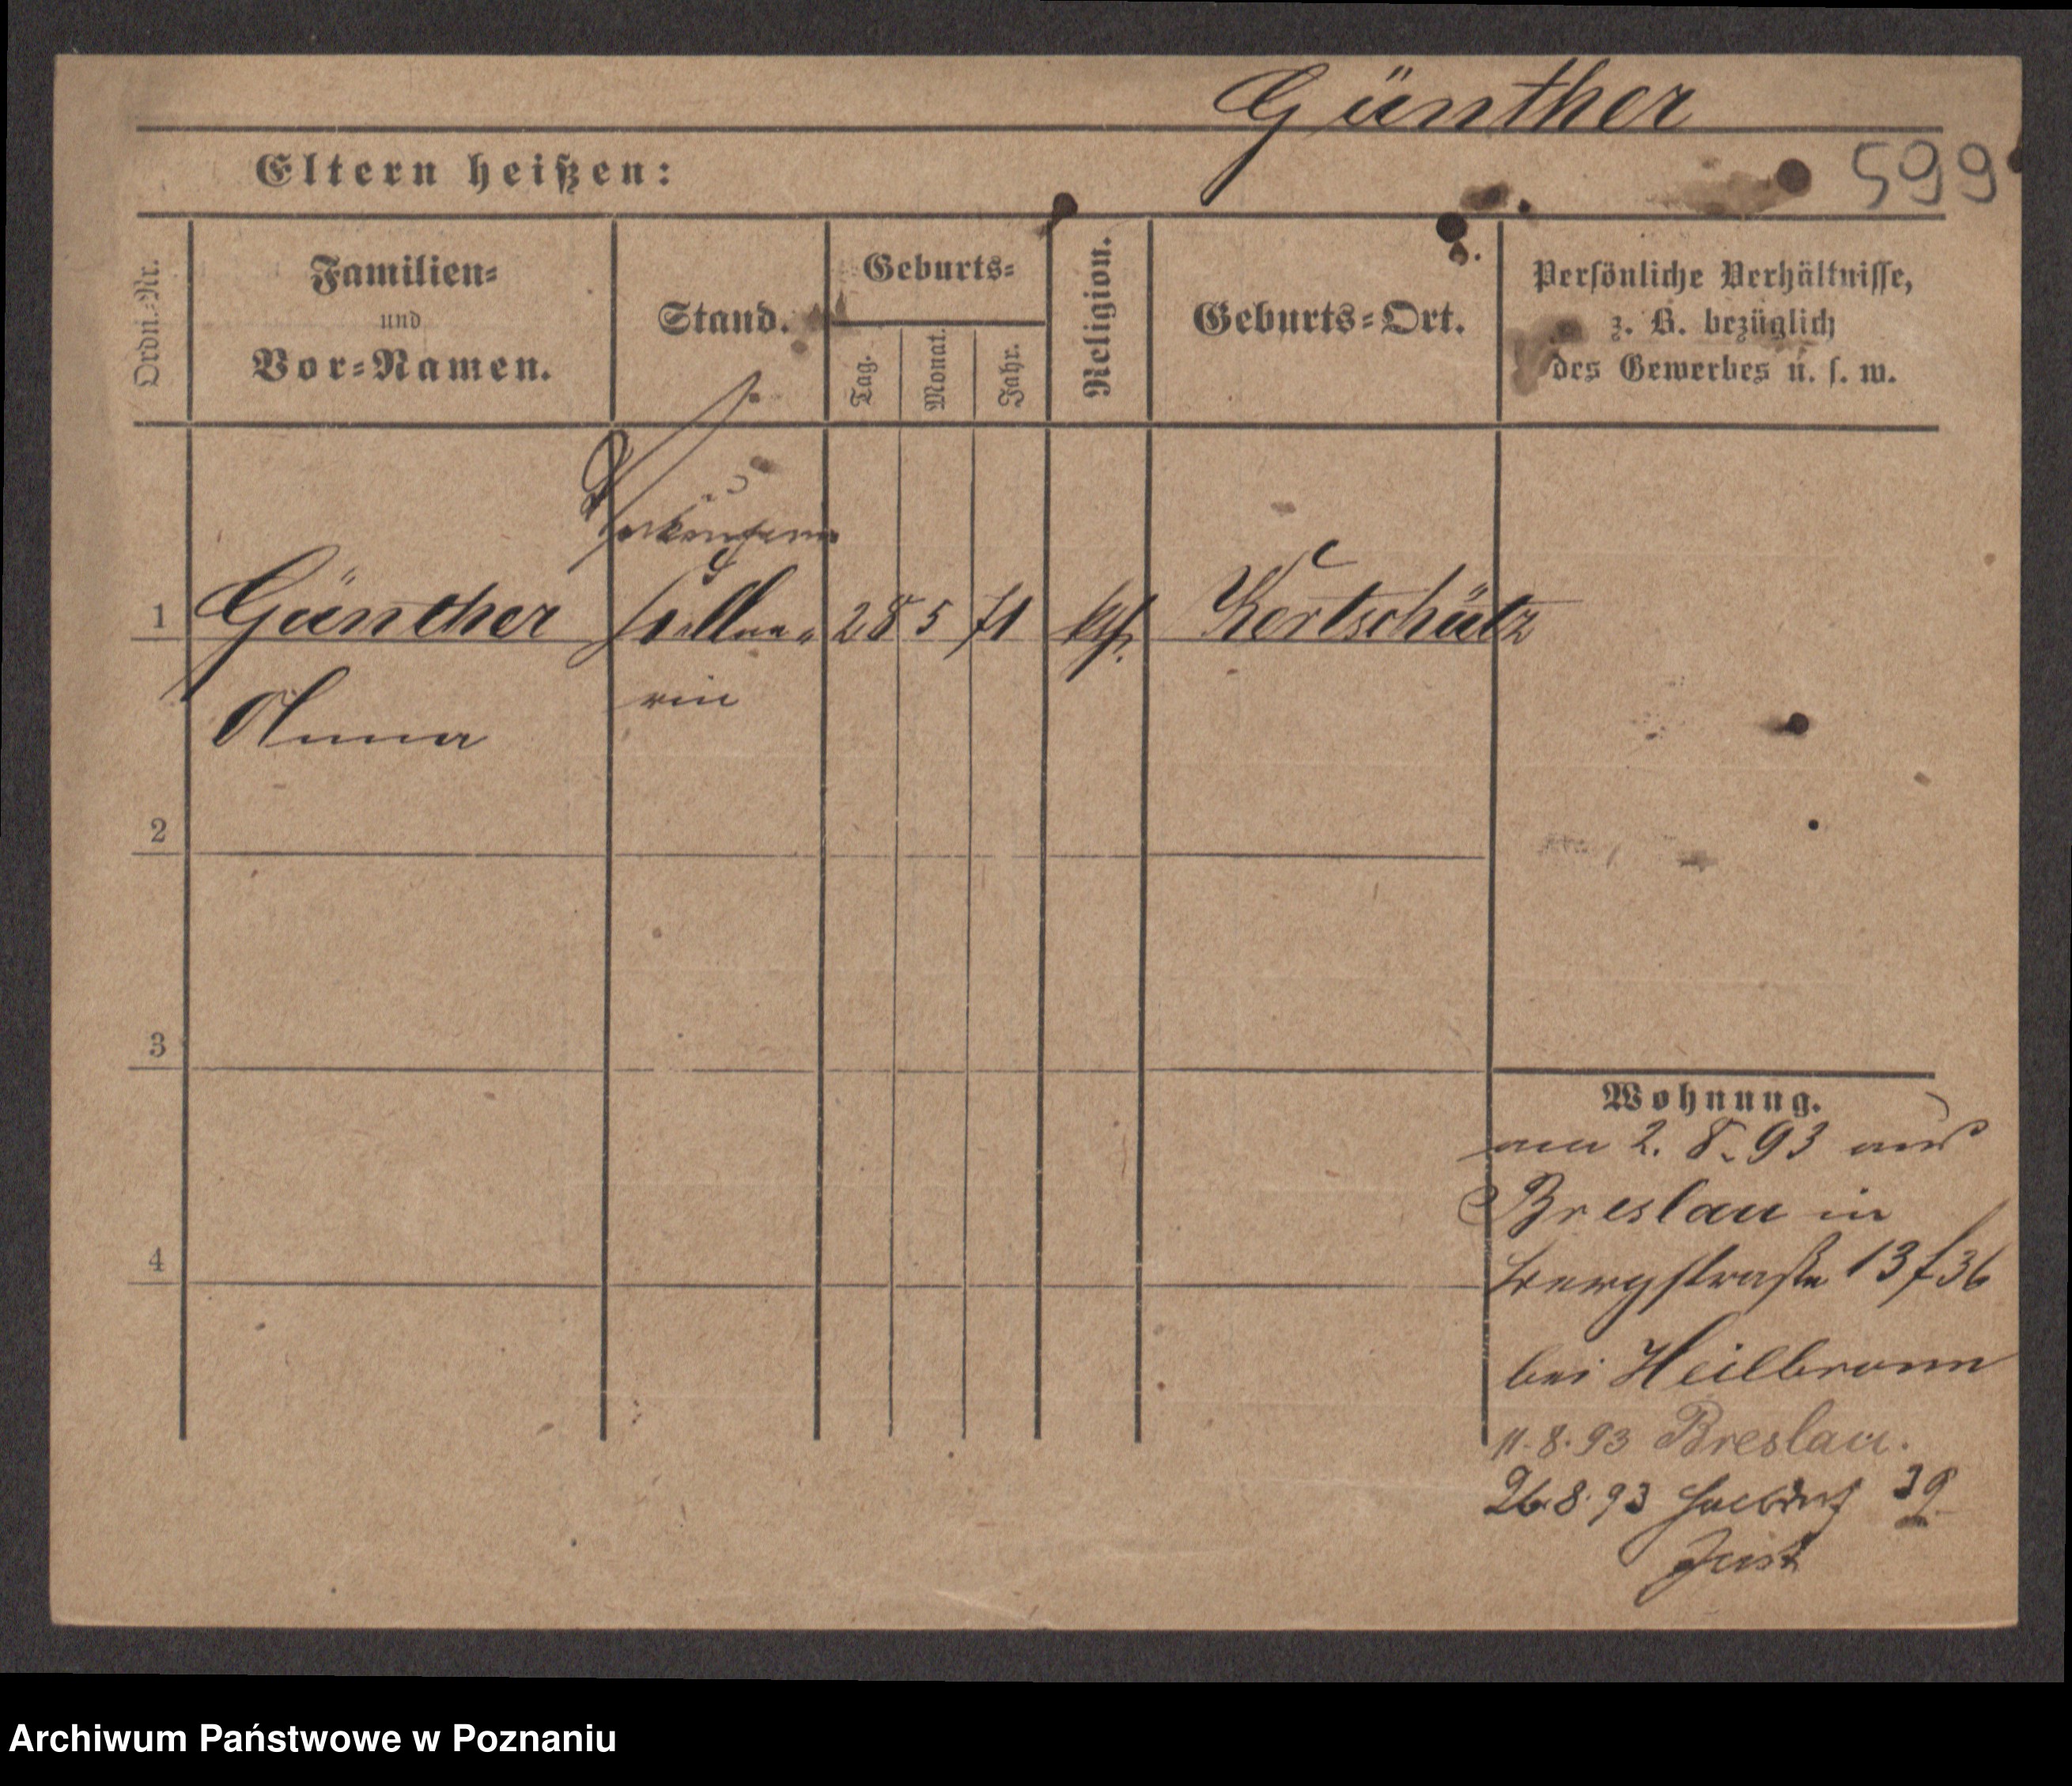 Günther
599
Eltern heißen:
Ordn.-Nr.
Familien-
und
Vor-Namen.
Stand.
Geburts-
Tag.
Monat.
Jahr.
Religion.
Geburts-Ort.
Persönliche Verhältnisse,
z. B. bezüglich
des Gewerbes u. s. w.
1 Günther 28 5 71 kth. Kertschütz
rin
Anna
2
3
4
Wohnung.
am 2. 8. 93 aus
Breslau in
Bergstraße 13
bei Heilbronn
11. 8. 93 Breslau.
26. 8. 93 Halbdorf 39
Just
Archiwum Państwowe w Poznaniu